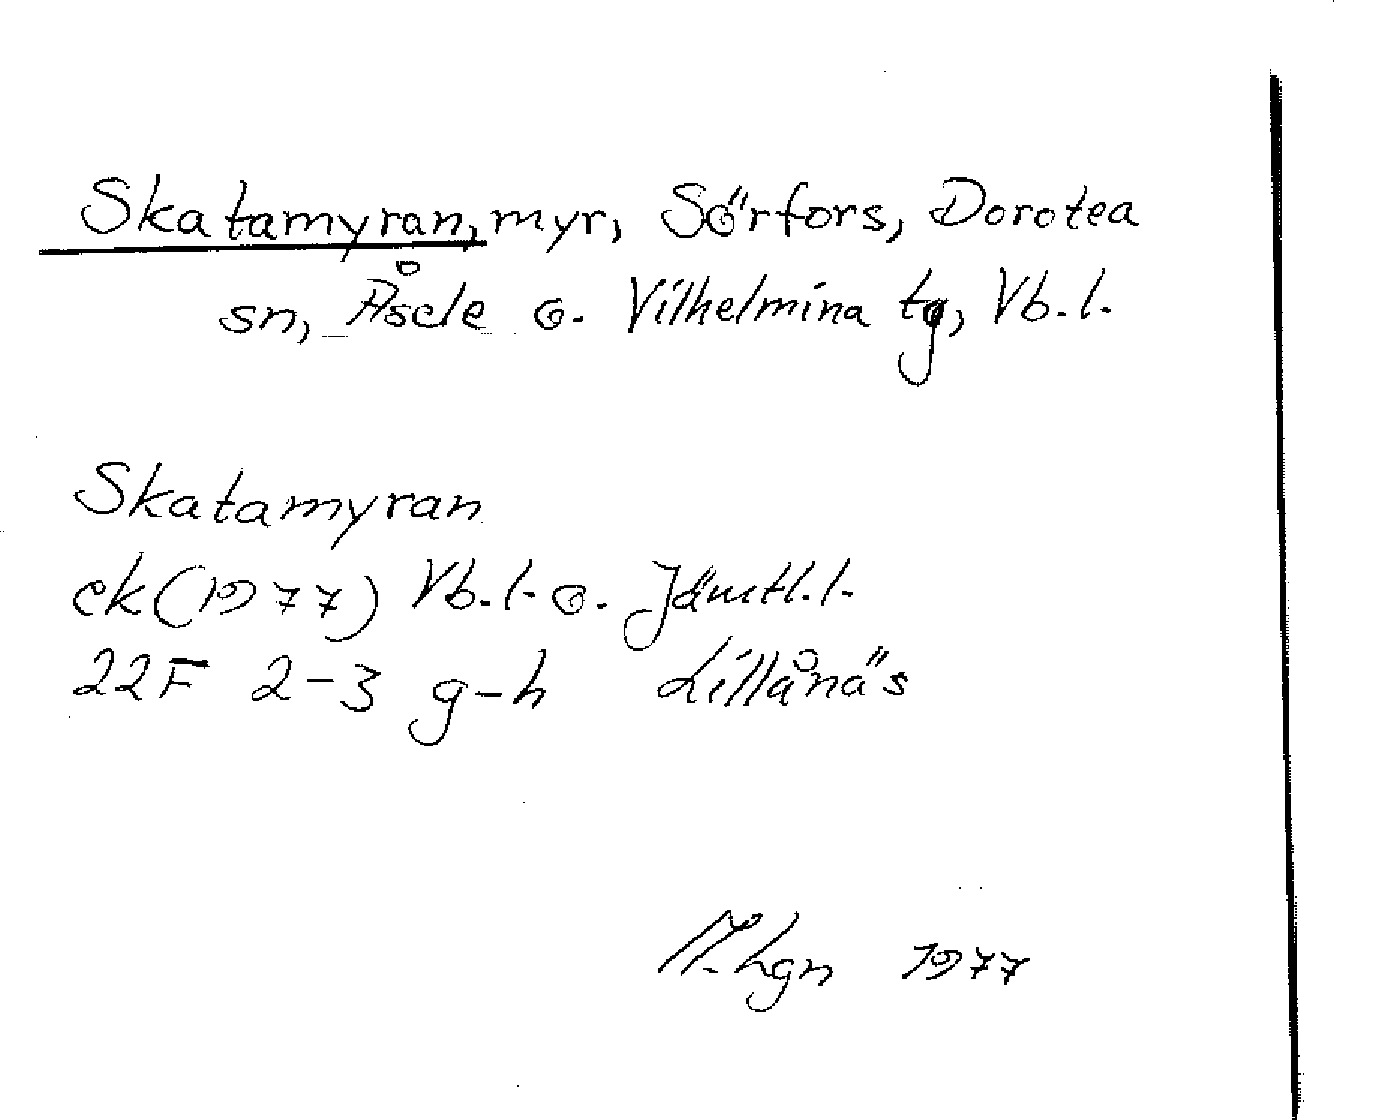 Skatamyran, myr, Sörfors, Dorotea
sn, Åsele o. Vilhelmina tg, Vb.l.
Skatamyran
ek (1977) Vb.l. o. Jämtl.l.
22F 2-3 g-h Lillånäs
1977